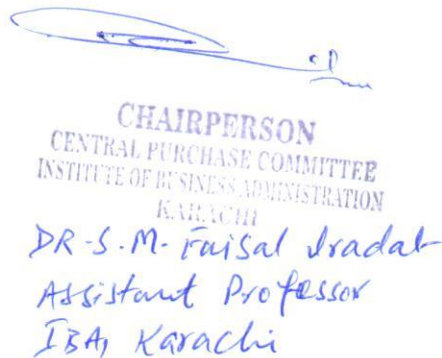 CHAIRPERSON
CENTRAL PURCHASE COMMITTEE
INSTITUTE OF BUSINESS ADMINISTRATION
KARACHI
DR-S.M-Faisal Iradat
Assistant Professor
IBA, Karachi